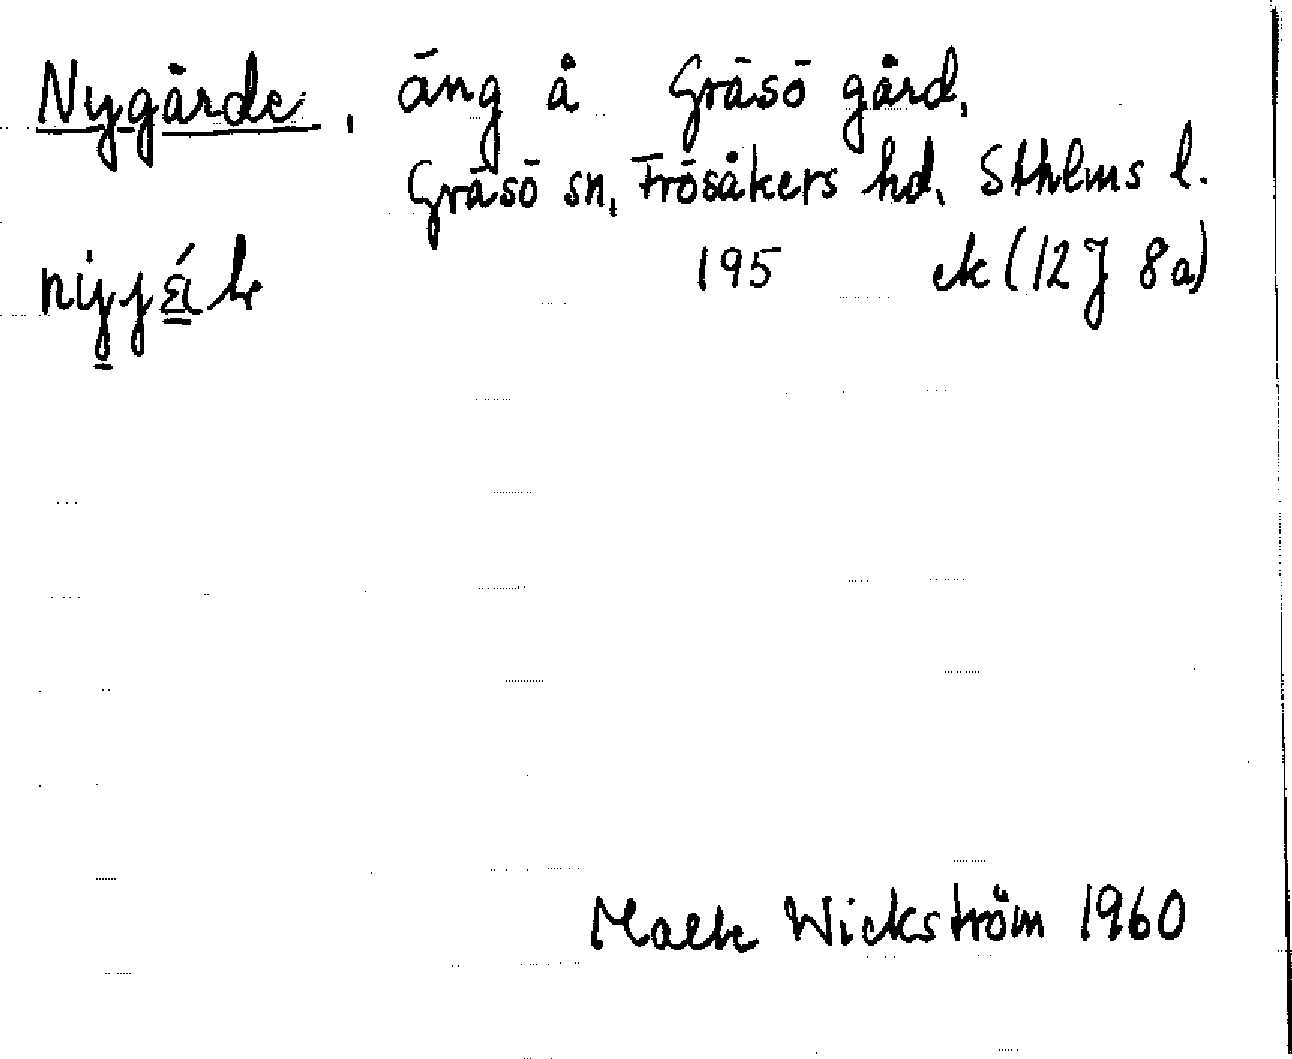 Nygärde, äng å Gräsö gård,
Gräsö sn, Frösåkers hd, Sthlms l.
195 ek (12J 8a)
Malte Wickström 1960